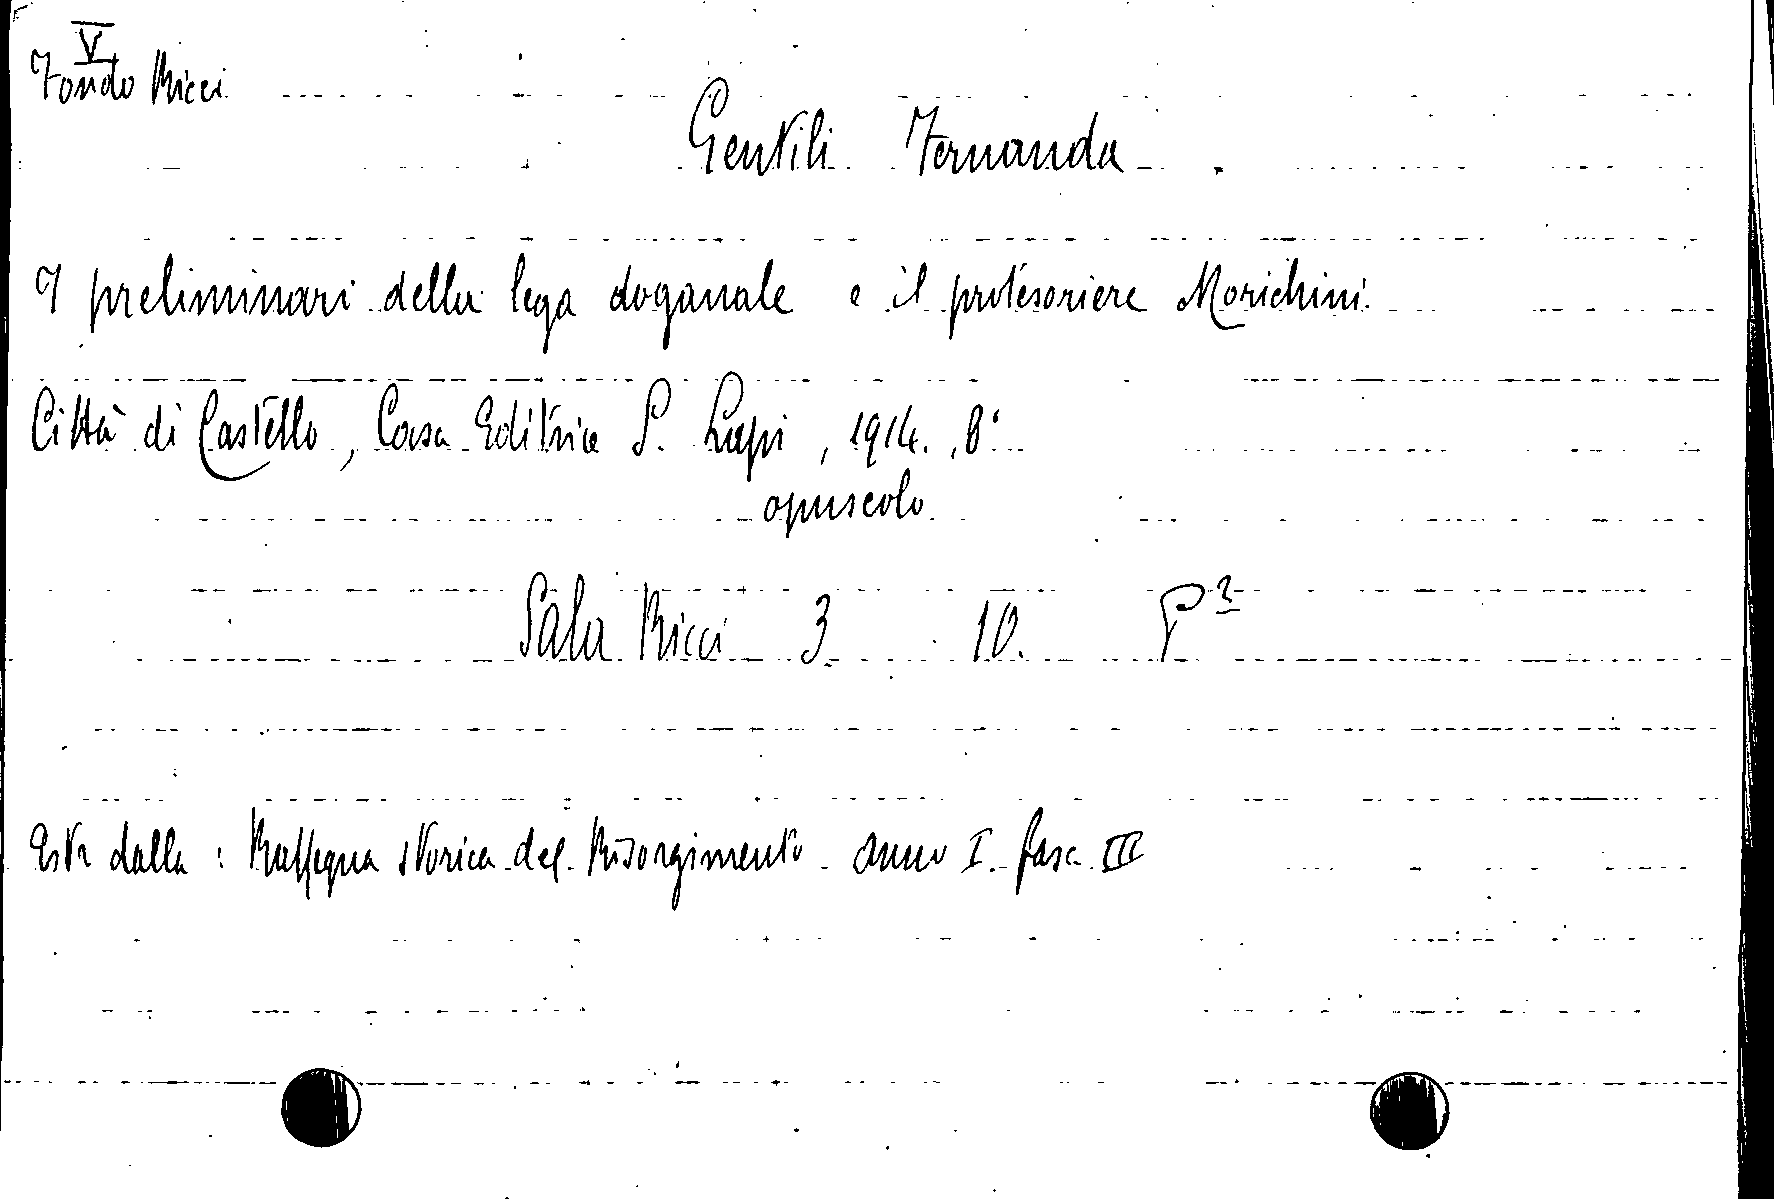 V
Fondo Ricci
Gentili Fernanda
I preliminari della lega doganale e il protesoriere Morichini
Città di Castello, Casa Editrice S. Lapi, 1914. 8°
opuscolo
Sala Ricci 3 10.
Estr dalla: Rassegna storica del Risorgimento anno I. fasc. III